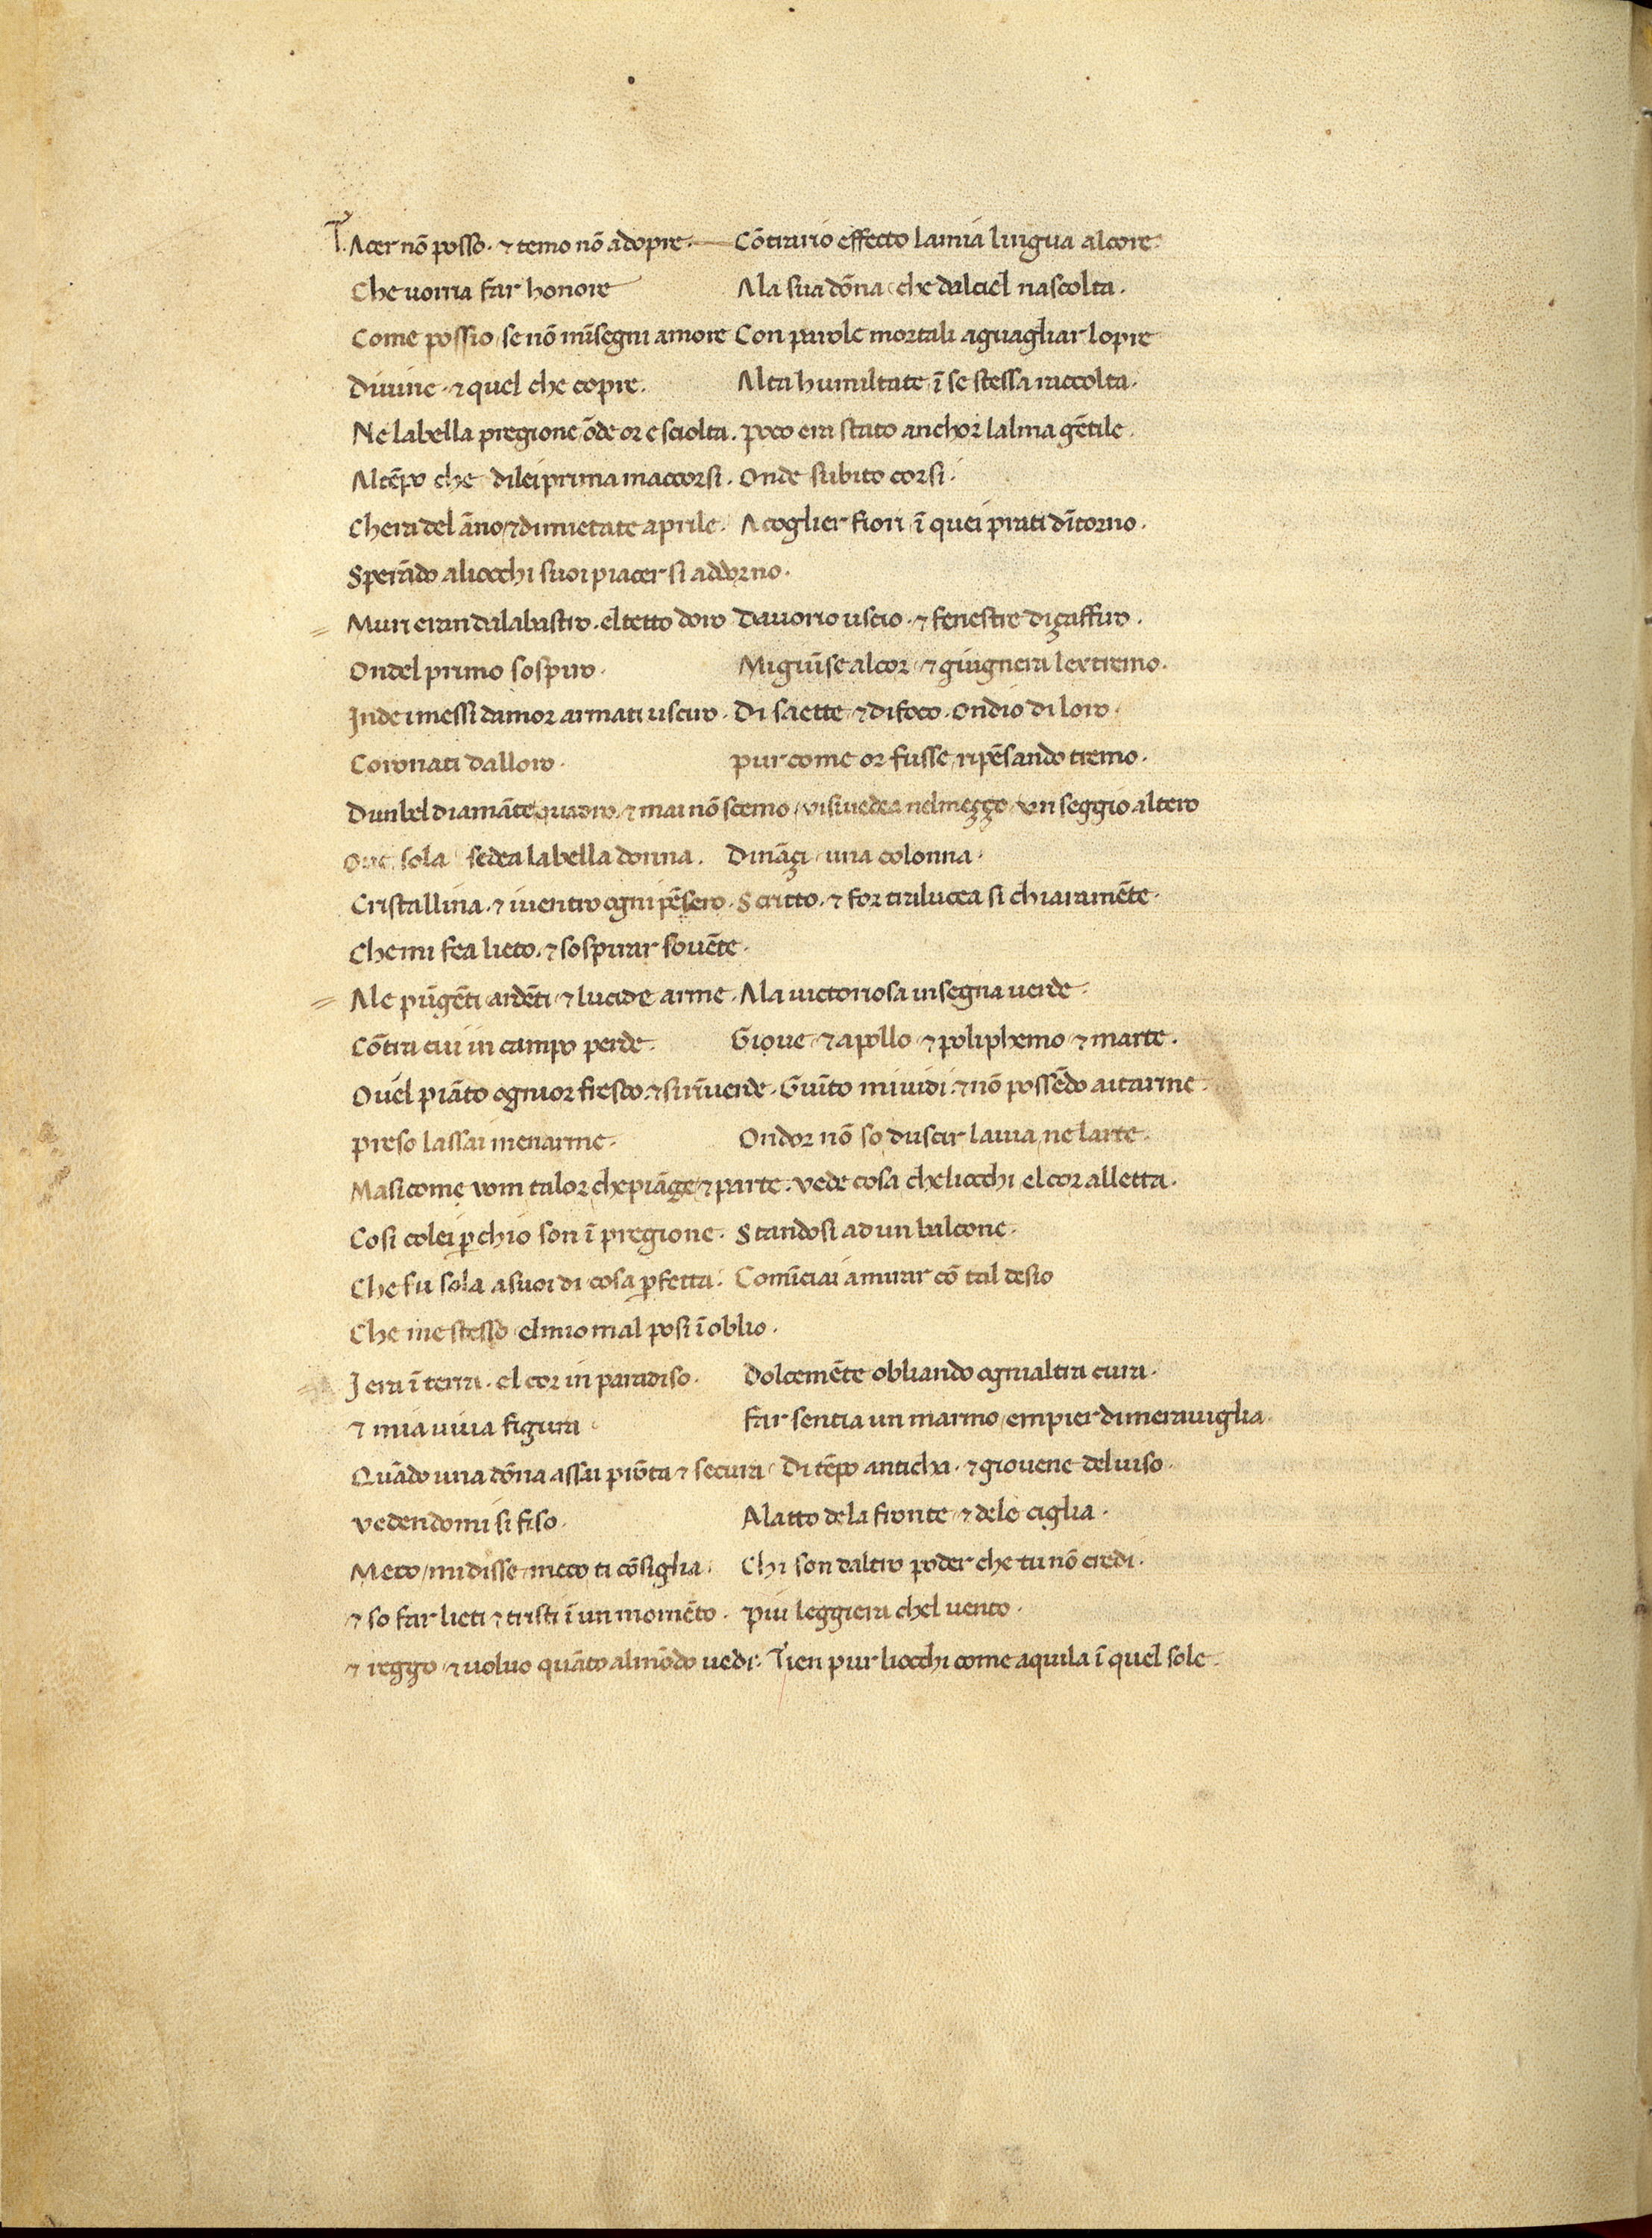 TAcer nō posso. ⁊ temo nō adopre. Cōtrario effecto lamia lingua alcore.
Che uorria far honore Ala sua dōna che dalciel nascolta.
Come possio, se nō mīsegni amore Con parole mortali aguagliar lopre
Diuine. ⁊ quel che copre. Alta humiltate ī se stessa raccolta.
Ne labella pregione, ōde or e sciolta. poco era stato anchor lalma gētile.
Altēpo che dilei prima maccorsi. Onde subito corsi.
Chera del āno, ⁊ dimietate aprile. A coglier fiori ī quei prati dītorno.
Sperādo aliocchi suoi piacer si addorno.
Muri eran dalabastro. el tetto doro Dauorio uscio. ⁊ fenestre diçaffiro.
Ondel primo sospiro. Migiūse alcor, ⁊ giugnera lextremo.
Inde imessi damor armati usciro. Di saette, ⁊ difoco. Ondio di loro.
Coronati dalloro. pur come or fusse, ripēsando tremo.
Dunbel diamāte quadro, ⁊ mai nō scemo, visiuedea nelmeççço vn seggio altero
Oue, sola sedea labella donna. Dināçi, una colonna.
Cristallina. ⁊ iuentro ogni pēsero. Scritto. ⁊ for tralucea si chiaramēte.
Che mi fea lieto. ⁊ sospirar souēte.
Ale pūgēti ardēti, ⁊ lucide arme. Ala uictoriosa insegna uerde.
Cōtra cui in campo perde. Gioue ⁊ apollo ⁊ poliphemo ⁊ marte.
Ouel piāto ogni or fresco. ⁊ sirīuerde. Giūto miuidi. ⁊ nō possēdo aitarme.
preso lassai menarme. Ondor nō so duscir lauia, ne larte.
Masicome vom talor che piāge, ⁊ parte. vede cosa cheliocchi el cor alletta.
Cosi colei ꝑ chio son ī pregione. Standosi ad un balcone.
Che fu sola asuoi di cosa ꝑfetta. Comīciai amirar cō tal desio
Che me stesso elmio mal posi ī oblio.
I era ī terra. el cor in paradiso. Dolcemēte obliando ognialtra cura.
⁊ mia uiua figura far sentia un marmo, empier dimerauiglia.
Quādo una dōna assai prōta ⁊ secura, Di tēpo anticha. ⁊ giouene deluiso.
vedendomi si fiso. Alatto dela fronte ⁊ dele ciglia.
Meco, midisse, meco ti cōsiglia. Chi son daltro poder che tu nō credi.
⁊ so far lieti ⁊ tristi ī un momēto. piu leggiera chel uento.
⁊ reggo ⁊ uoluo quāto almōdo uedi. Tien pur liocchi come aquila ī quel sole.